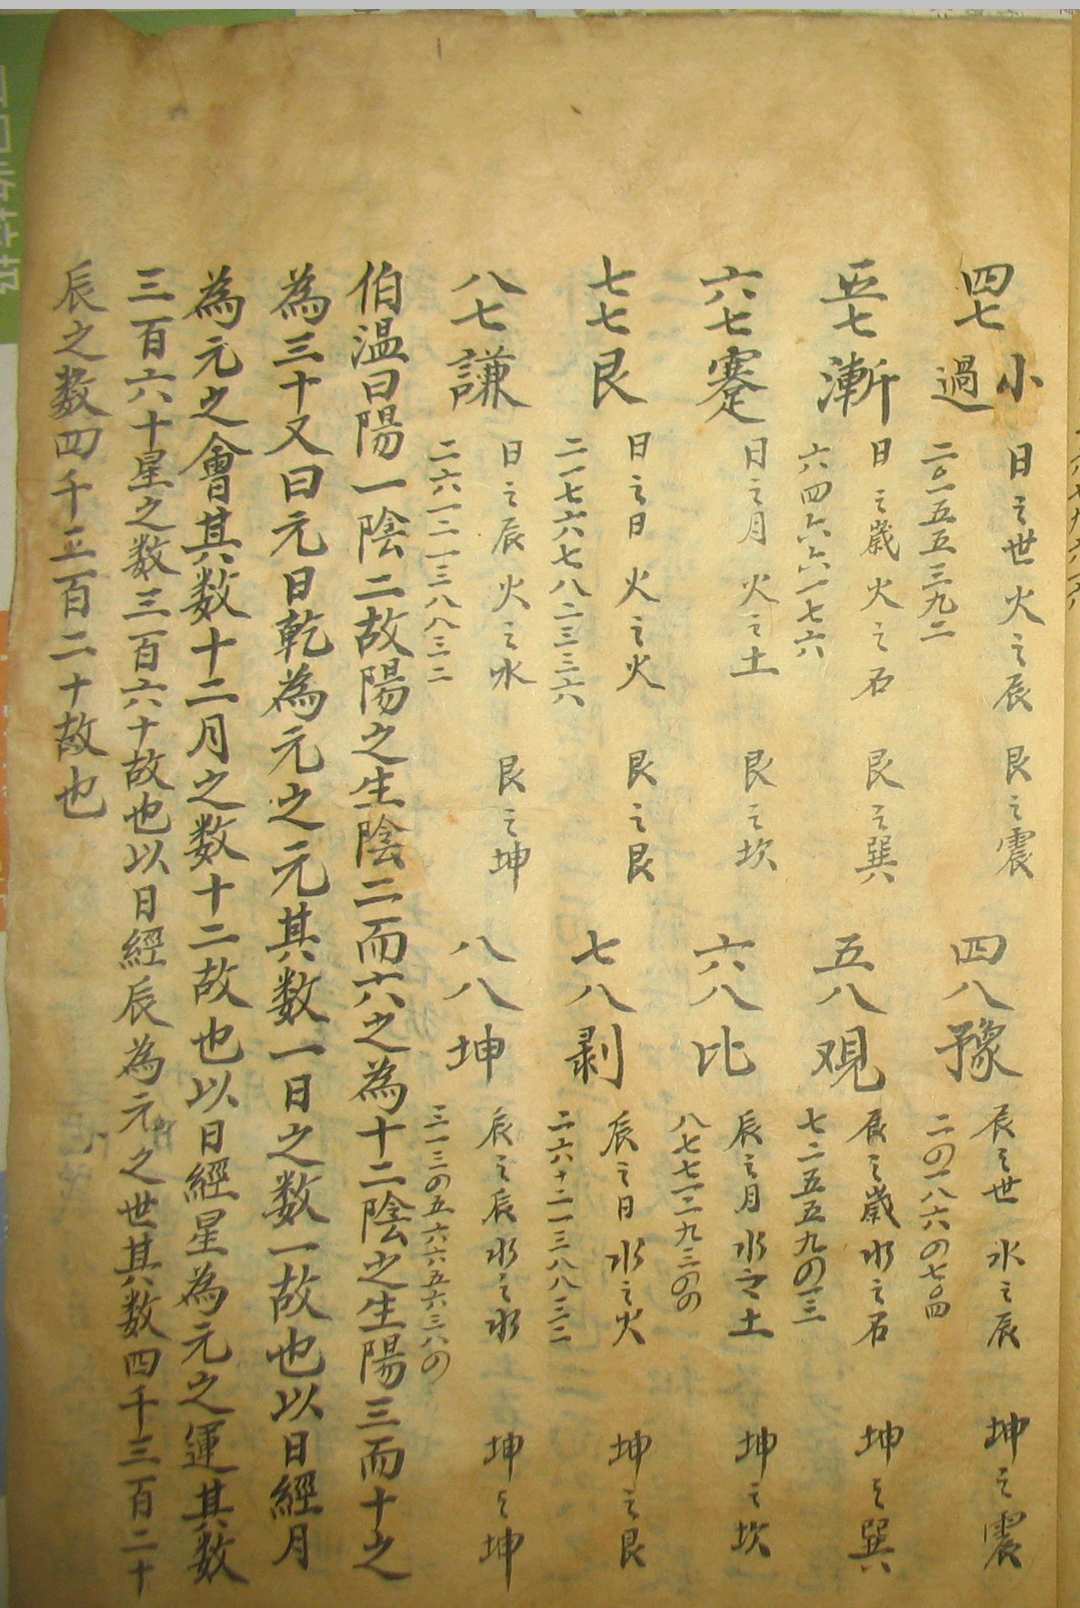 四七 小過 日之世 火之辰 艮之震
二〇一五五三九二
四八 豫 辰之世 水之辰 坤之震
五七 漸 日之歲 火之石 艮之巽
六四六六一七六
五八 观 辰之歲 水之石 坤之巽
六七 蹇 日之月 火之土 艮之坎
六八 比 辰之月 水之土 坤之坎
七七 艮 日之日 火之火 艮之艮
二一七六七八二三三六
七八 剥 辰之日 水之火 坤之艮
八七 謙 日之辰 火之水 艮之坤
二六一二一三八八三二
八八 坤 辰之辰 水之水 坤之坤
伯温曰陽一陰二故陽之生陰二而六之為十二陰之生陽三而十之
為三十又曰元日乾為元之元其数一日之数一故也以日經月
為元之會其数十二月之数十二故也以日經星為元之運其数
三百六十星之数三百六十故也以日經辰為元之世其数四千三百二十
辰之数四千三百二十故也